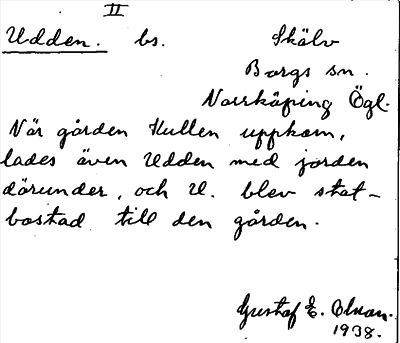 II
Udden. bs. Skälv
Borgs sn.
Norrköping Ögl.
När gården Kullen uppkom,
lades även Udden med jorden
därunder, och U. blev stat-
bostad till den gården.
Gustaf E. Olson.
1938.